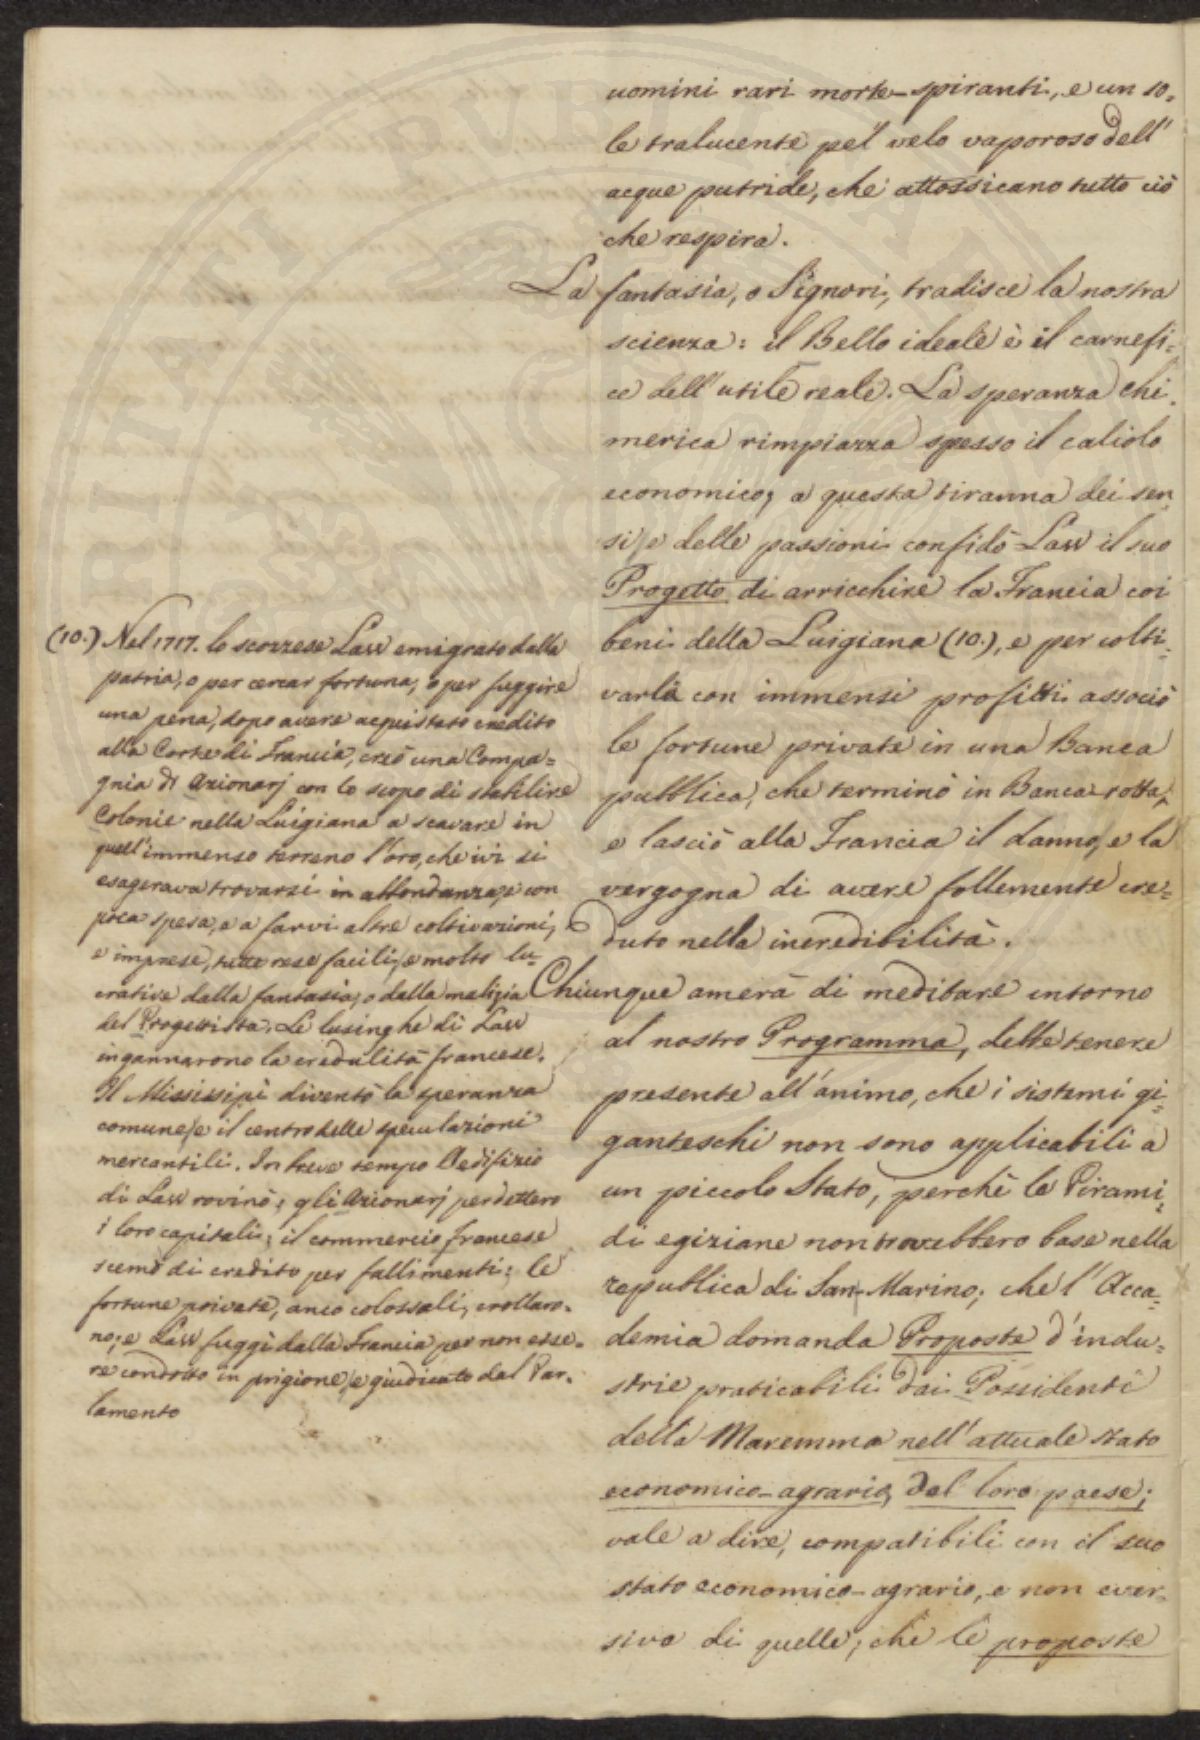 uomini rari morte-spiranti, e un so=
le tralucente pel velo vaporoso dell'
acque putride, che attossicano tutto ciò
che respira.
La fantasia, o Signori, tradisce la nostra
scienza: il Bello ideale è il carnefi=
ce dell'utile reale. La speranza chi=
merica rimpiazza spesso il calcolo
economico; a questa tiranna dei sen=
si, e delle passioni confidò Law il suo
Progetto di arricchire la Francia coi
beni della Luigiana (10.), e per colti=
varla con immensi profitti associò
le fortune private in una Banca
pubblica, che terminò in Banca-rotta,
e lasciò alla Francia il danno, e la
vergogna di avere follemente cre=
duto nella incredibilità.
Chiunque amerà di meditare intorno
al nostro Programma, debbe tenere
presente all'animo, che i sistemi gi=
ganteschi non sono applicabili a
un piccolo Stato, perchè le Pirami=
di egiziane non troverebbero base nella
republica di San-Marino; che l'Acca=
demia domanda Proposte d'indu=
strie praticabili dai Possidenti
della Maremma nell'attuale stato
economico-agrario, del loro paese;
vale a dire, compatibili con il suo
stato economico-agrario, e non ever=
sive di quelle; che le proposte
(10.) Nel 1717. lo scozzese Law emigrato dalla
patria, o per cercar fortuna, o per fuggire
una pena, dopo avere acquistato credito
alla Corte di Francia, creò una Compa=
gnia di Azionarj con lo scopo di stabilire
Colonie nella Luigiana a scavare in
quell'immenso terreno l'oro, che ivi si
esagerava trovarsi in abbondanza, e con
poca spesa, e a farvi altre coltivazioni,
e imprese, tutte rese facili, e molto lu=
crative dalla fantasia, o dalla malizia
del Progettista. Le lusinghe di Law
ingannarono la credulità francese.
Il Mississipì diventò la speranza
comune, e il centro delle speculazioni
mercantili. In breve tempo l'edifizio
di Law rovinò; gli Azionarj perdettero
i loro capitali; il commercio francese
scemò di credito per fallimenti; le
fortune private, anco colossali, crollaro=
no; e Law fuggì dalla Francia per non esse=
re condotto in prigione, e giudicato dal Par=
lamento